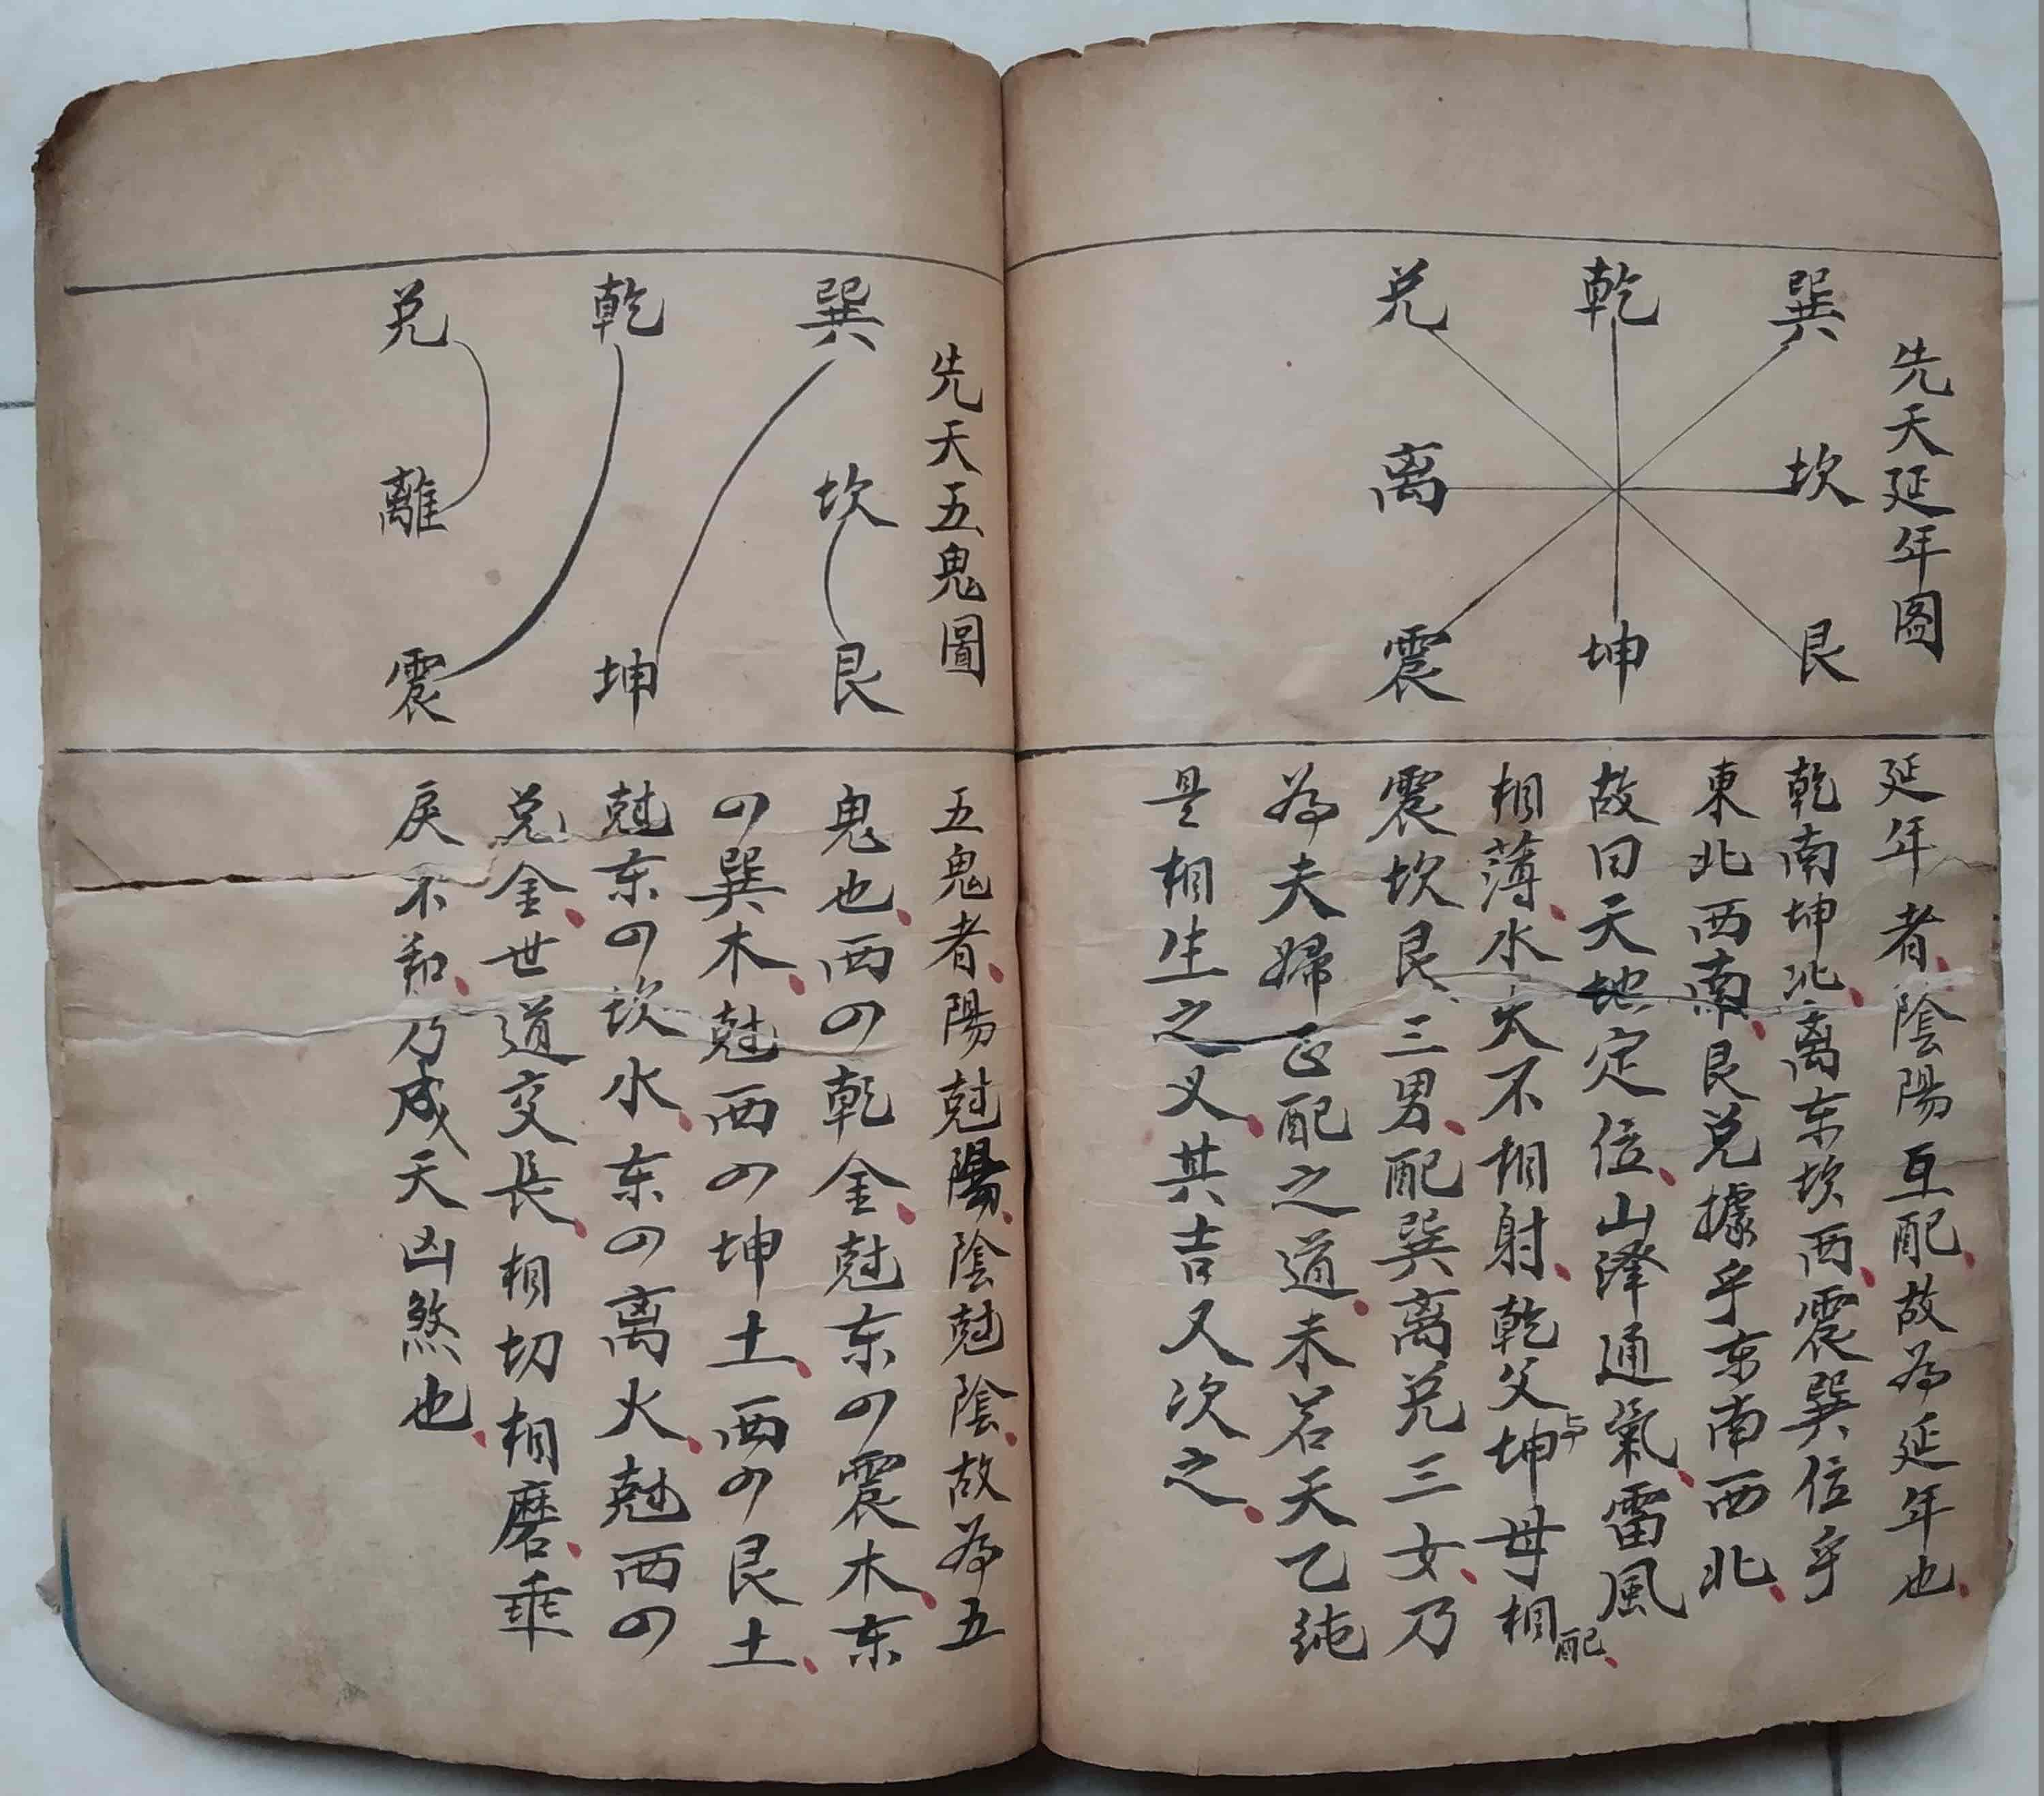 先天延年图
巽 乾 兑
坎 离
艮 坤 震
延年者、陰陽互配、故為延年也、
乾南坤北、离东坎西、震巽位乎
東北西南、艮兑據乎东南西北、
故曰天地定位、山澤通氣、雷風
相薄、水火不相射、乾父与坤母相配、
震坎艮、三男、配巽离兑三女、乃
為夫婦正配之道、未若天乙純
是相生之义、其吉又次之、
先天五鬼圖
巽 乾 兑
坎 離
艮 坤 震
五鬼者、陽尅陽、陰尅陰、故為五
鬼也、西四乾金、尅东四震木、东
四巽木、尅西四坤土、西四艮土、
尅东四坎水、东四离火、尅西四
兑金、世道交長、相切相磨、乖
戾不和、乃成天凶煞也、